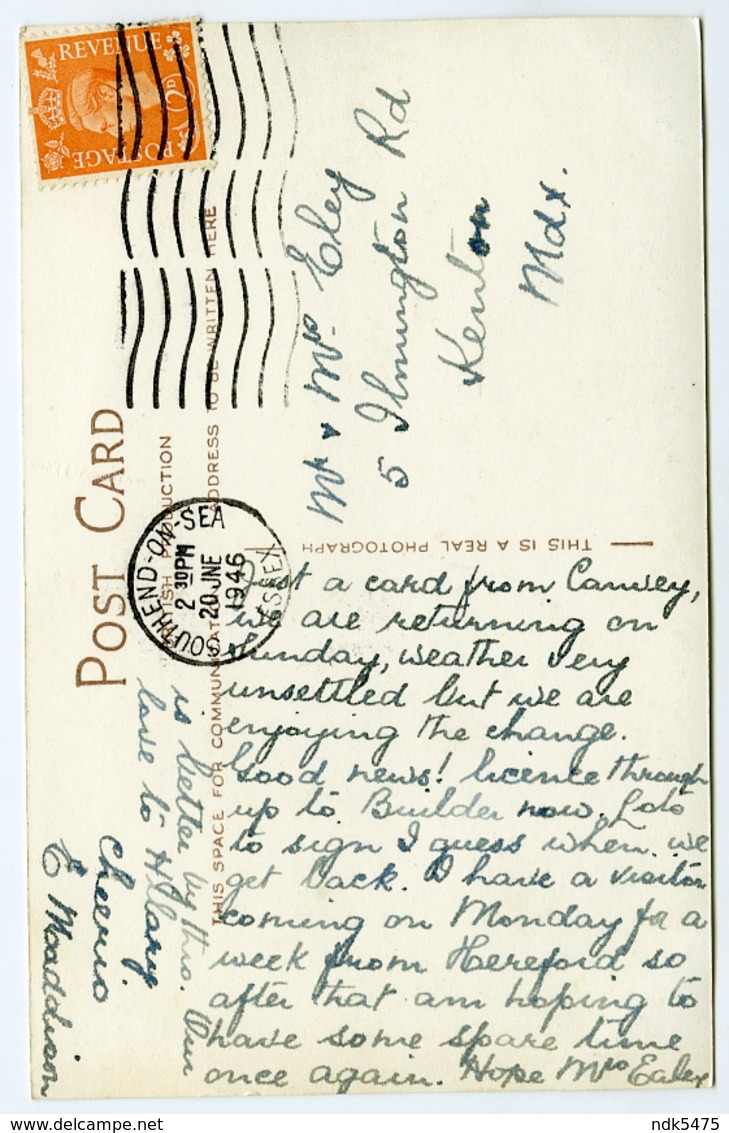 POST CARD
BRITISH PRODUCTION
THIS SPACE FOR COMMUNICATION
ADDRESS TO BE WRITTEN HERE
THIS IS A REAL PHOTOGRAPH
POSTAGE
REVENUE
2D
SOUTHEND-ON-SEA
2 30PM
20 JNE
1946
ESSEX
Mr & Mrs Eley
5 Ilmington Rd
Kenton
Mdx.
Just a card from Canvey,
we are returning on
Sunday, weather very
unsettled but we are
enjoying the change.
Good news! licence through
up to Builder now. Lots
to sign I guess when we
get back. I have a visitor
coming on Monday for a
week from Hereford so
after that am hoping to
have some spare time
once again. Hope Mrs
is better by this. Our
love to Hilary.
Cheerio
E Maddison
ndk5475